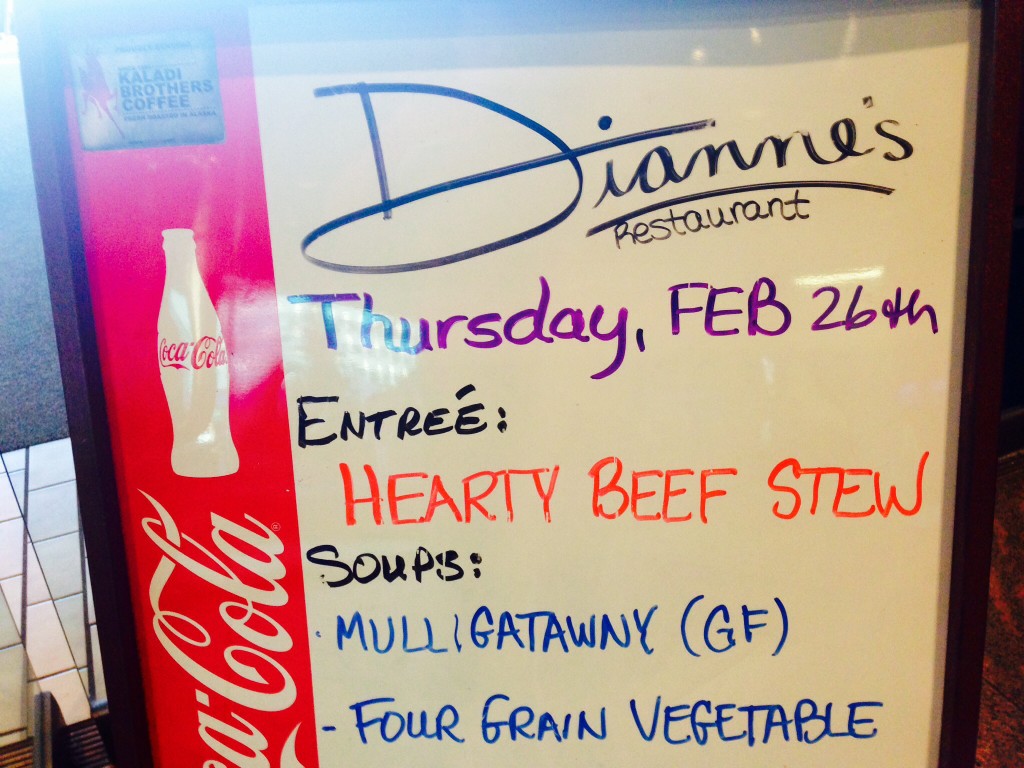 KALADI
BROTHERS
COFFEE
Dianne's
Restaurant
Thursday, FEB 26th
ENTREÉ:
HEARTY BEEF STEW
SOUP'S:
· MULLIGATAWNY (GF)
- FOUR GRAIN VEGETABLE
Coca-Cola
Coca-Cola